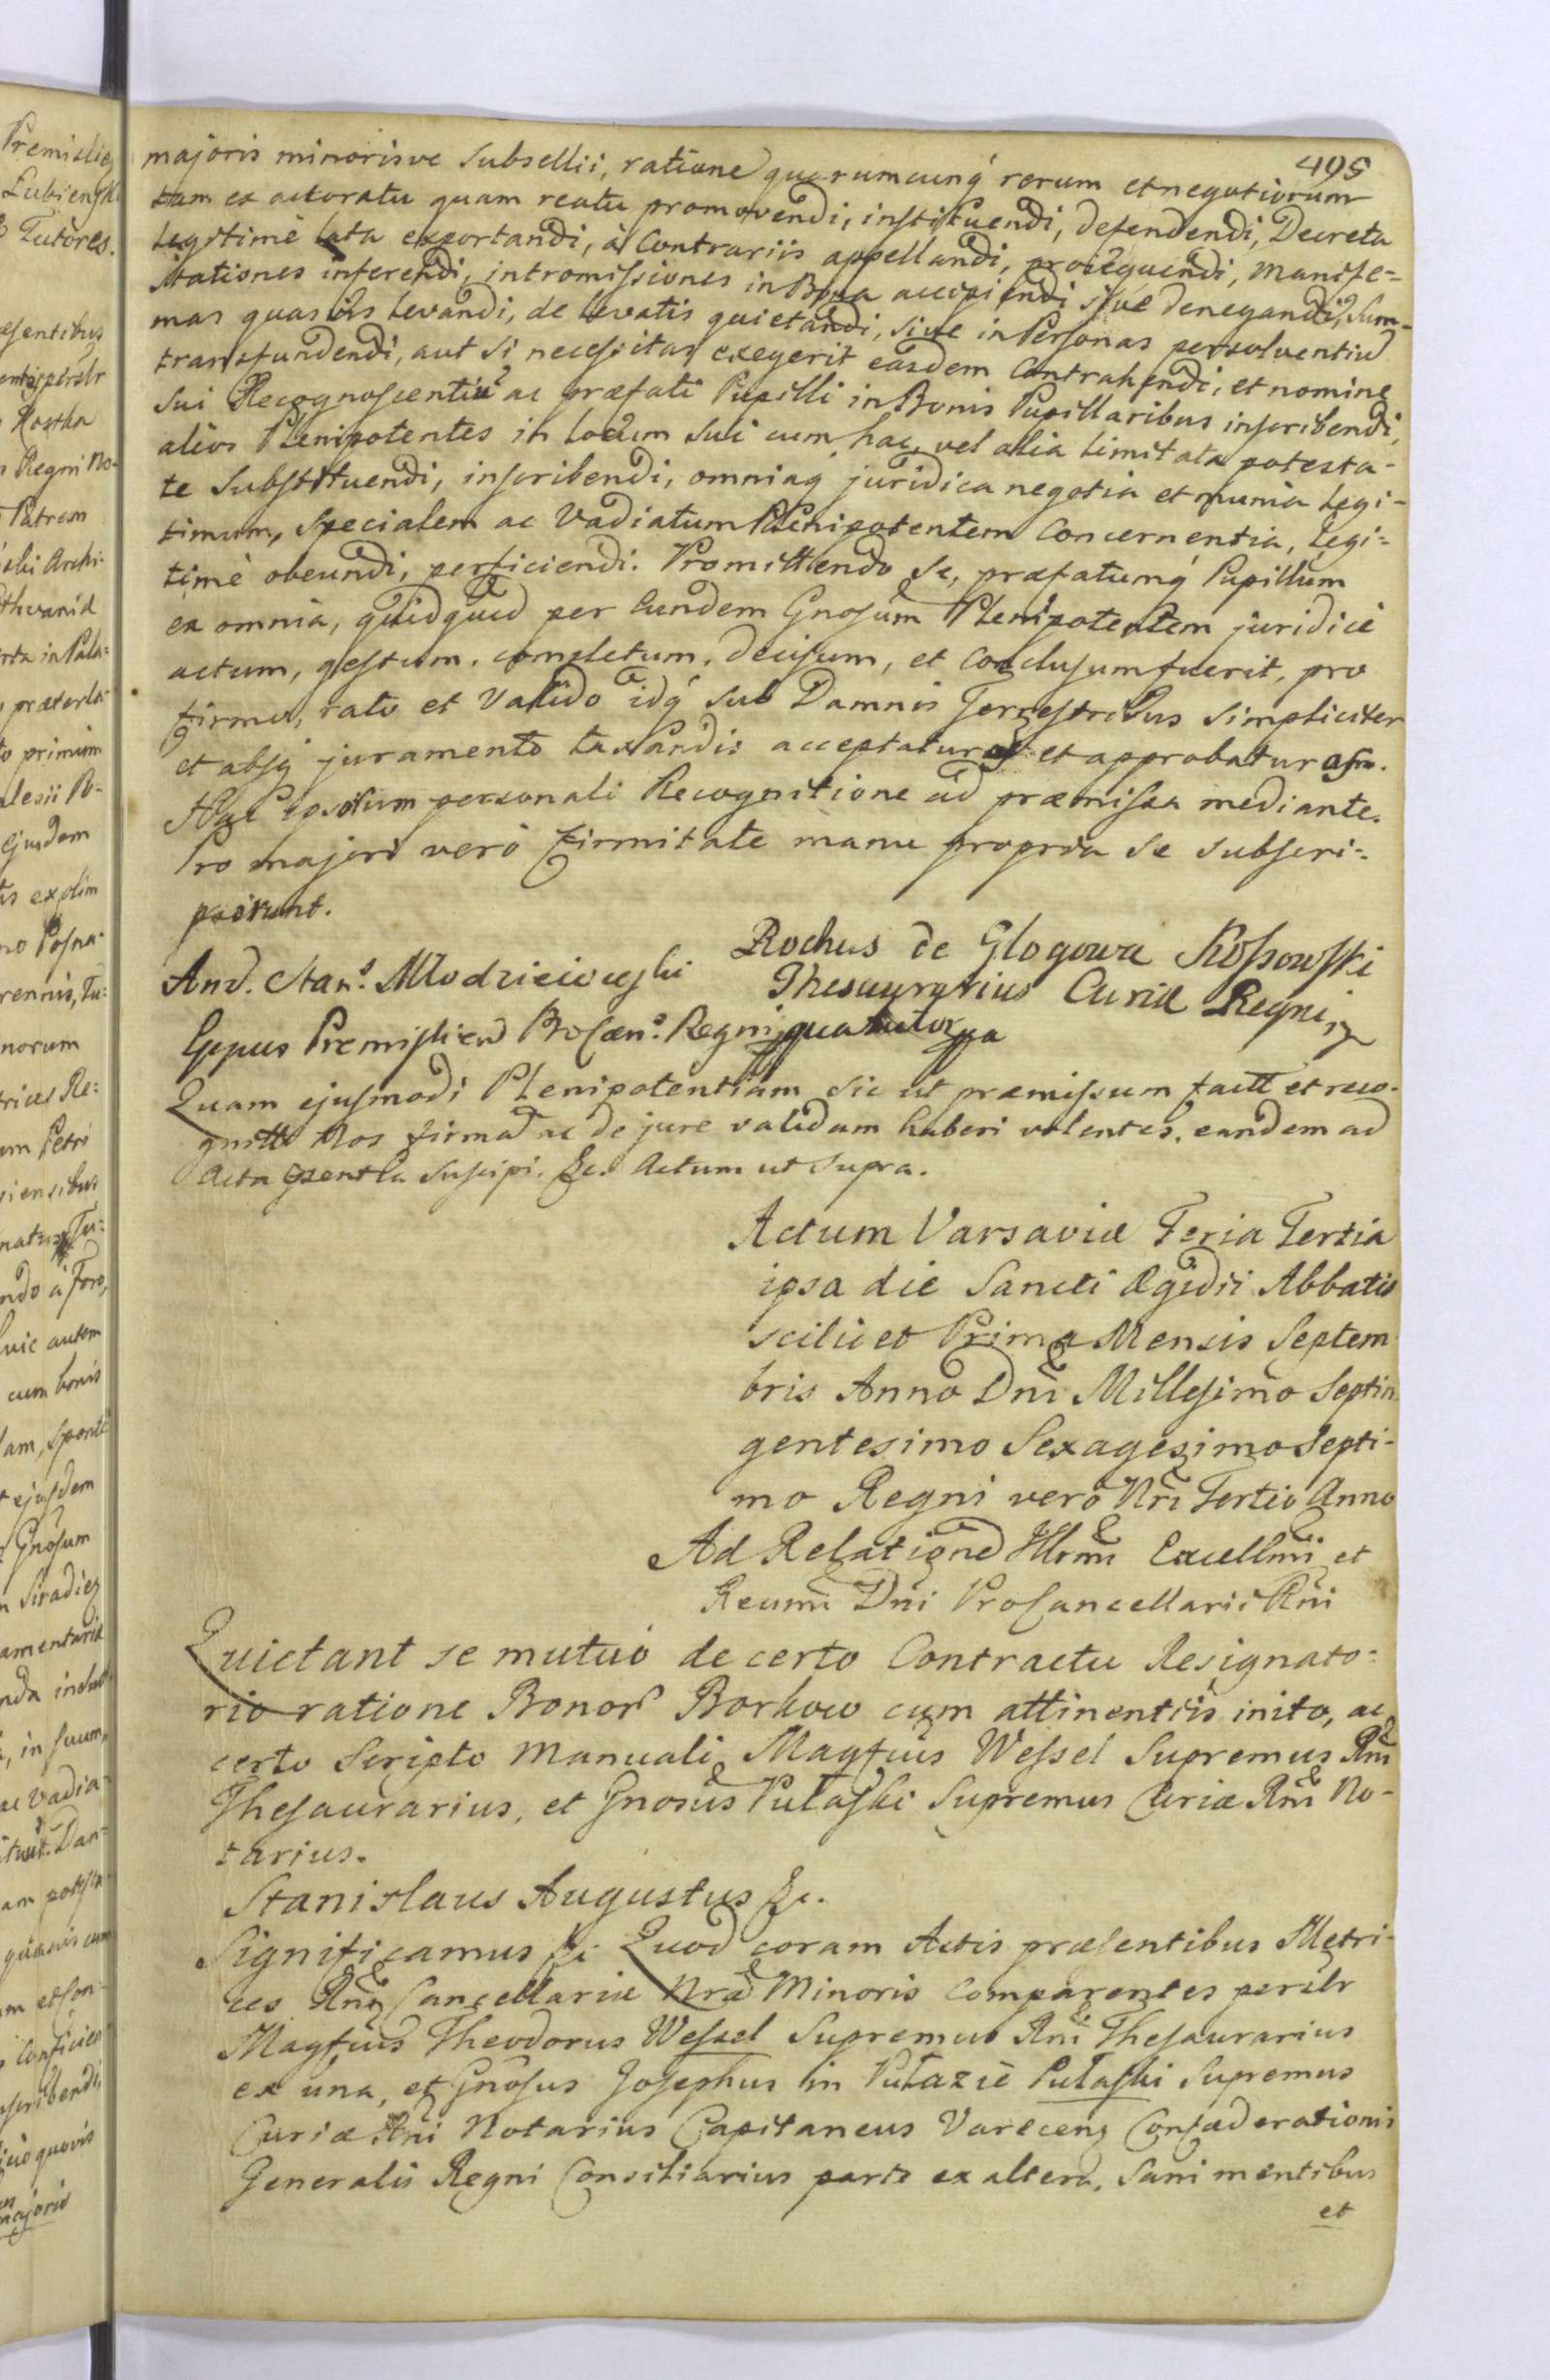 495
majoris minorisve Subsellii, ratione quorumcunq́ rerum et negotiorum
tam ex actoratu quam reatu promovendi, instituendi, defendendi, Decreta
legitimè lata exportandi, à Contrariis appellandi, prosequendi, Manife=
stationes inferendi, intromissiones in Bona accipiendi sive denegandi, Sum-
mas quasvis levandi, de levatis quietandi, sive in Personas persolventiũ
transfundendi, aut si necessitas exegerit easdem Contrahendi, et nomine
sui Recognoscentiũ ac præfati Pupilli in Bonis Pupillaribus inscribendi,
alios Plenipotentes in locum sui cum hac, vel alia limitata potesta-
te Substituendi, inscribendi, omniaq́ juridica negotia et munia legi-
timum, Specialem ac Vadiatum Plenipotentem Concernentia, legi=
timè obeundi, perficiendi. Promittendo se, præfatumq́ Pupillum
ea omnia, quidquid per Eundem Gnosum Plenipotentem juridicè
actum, gestum, completum, decisum, et Conclusum fuerit, pro
firmo, rato et Valido idq́ sub Damnis Terrestribus simpliciter
et absq́ juramento taxandis acceptaturos et approbaturos.
Hac ipsorum personali Recognitione ad præmissa mediante.
Pro majori verò firmitate manu propria se subscri=
pserunt.
Rochus de Glogowa Kossowski
Thesaurarius Curiæ Regni
And. Stan.s Młodzieiowski
Eppus Premislien Procan.s Regni qua tutor
Quam ejusmodi Plenipotentiam sic ut præmissum factt et reco-
gnitt Nos firmã ac de jure validam haberi volentes, eandem ad
Acta psentia suscipi. &c. Actum ut supra.
Actum Varsaviæ Feria Tertia
ipsa die Sancti Ægidii Abbatis
scilicet Prima Mensis Septem
bris Anno Dni Millesimo Septin
gentesimo Sexagesimo Septi-
mo Regni verò Nri Tertio Anno
Ad Relationẽ Illrmi Excellmi et
Reumi Dni ProCancellarii Rni
Quietant se mutuò de certo Contractu Resignato=
rio ratione Bonor Borkow cum attinentiis inito, ac
certo Scripto Manuali Magfius Wessel Supremus Rni
Thesaurarius, et Gnosus Pułaski Supremus Curiæ Rni No-
tarius.
Stanislaus Augustus &c.
Significamus &c Quod coram Actis præsentibus Metri-
ces Rni Cancellariæ Nræ Minoris Comparentes persltr
Magfius Theodorus Wessel Supremus Rni Thesaurarius
ex una, et Gnosus Josephus in Pułazie Pułaski Supremus
Curiæ Rni Notarius Capitaneus Varecens Confæderationis
Generalis Regni Consiliarius parte ex altera, sani mentibus
et